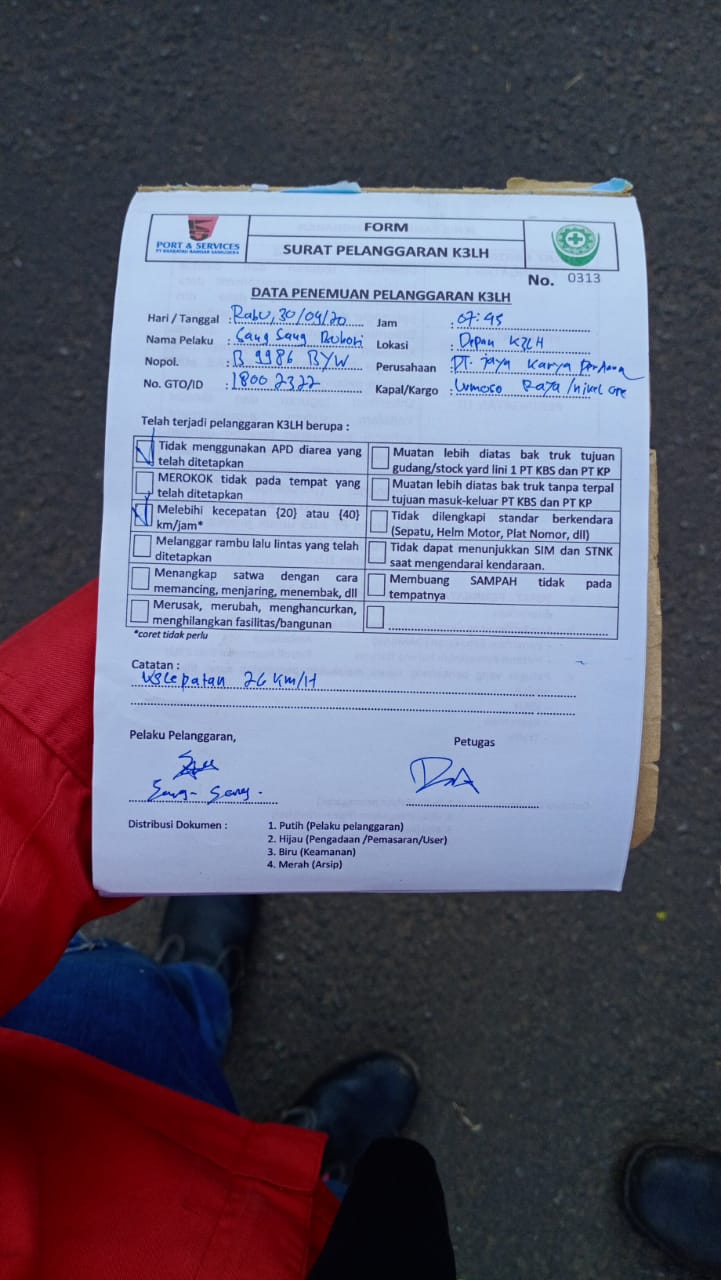 PORT & SERVICES
PT KRAKATAU BANDAR SAMUDERA
FORM
SURAT PELANGGARAN K3LH
No. 0313
DATA PENEMUAN PELANGGARAN K3LH
Hari / Tanggal : Rabu, 30/04/20 Jam : 07:45
Nama Pelaku : Sang Sang Lokasi : Depan K3LH
Nopol. : B 9986 BYW Perusahaan : PT. Jaya Karya
No. GTO/ID : 1800 2322 Kapal/Kargo : Raya / nikel ore
Telah terjadi pelanggaran K3LH berupa :
Tidak menggunakan APD diarea yang
telah ditetapkan
Muatan lebih diatas bak truk tujuan
gudang/stock yard lini 1 PT KBS dan PT KP
MEROKOK tidak pada tempat yang
telah ditetapkan
Muatan lebih diatas bak truk tanpa terpal
tujuan masuk-keluar PT KBS dan PT KP
Melebihi kecepatan {20} atau {40}
km/jam*
Tidak dilengkapi standar berkendara
(Sepatu, Helm Motor, Plat Nomor, dll)
Melanggar rambu lalu lintas yang telah
ditetapkan
Tidak dapat menunjukkan SIM dan STNK
saat mengendarai kendaraan.
Menangkap satwa dengan cara
memancing, menjaring, menembak, dll
Membuang SAMPAH tidak pada
tempatnya
Merusak, merubah, menghancurkan,
menghilangkan fasilitas/bangunan
*coret tidak perlu
Catatan :
Kecepatan 26 KM/H
Pelaku Pelanggaran, Petugas
Sang-Sang.
Distribusi Dokumen : 1. Putih (Pelaku pelanggaran)
2. Hijau (Pengadaan /Pemasaran/User)
3. Biru (Keamanan)
4. Merah (Arsip)